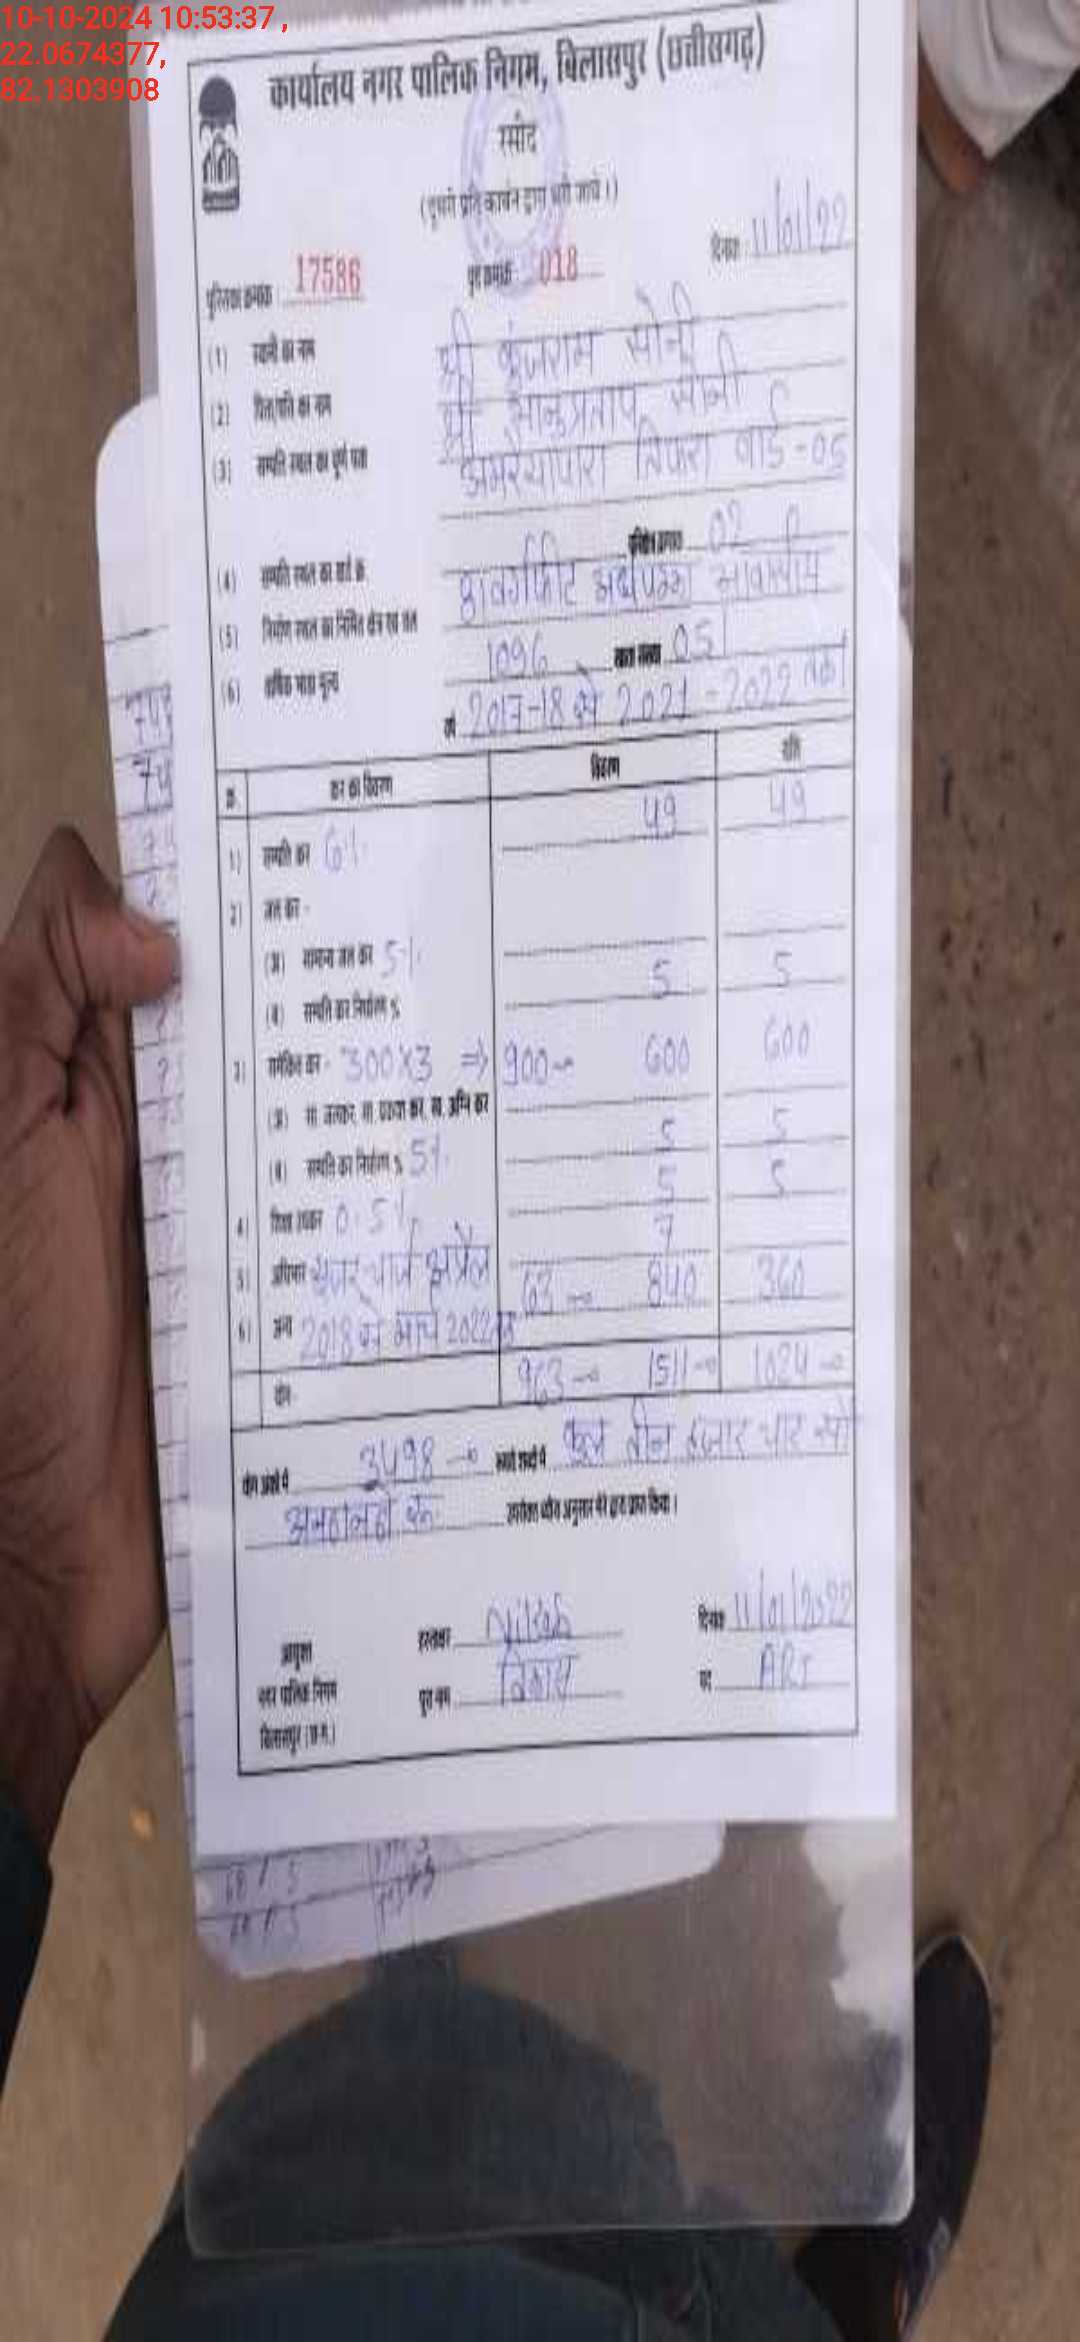 10-10-2024 10:53:37 ,
22.0674377,
82.1303908
कार्यालय नगर पालिक निगम, बिलासपुर (छत्तीसगढ़)
रसीद
(दूसरी प्रति कार्बन द्वारा भरी जावे।)
दिनांक 11/01/22
पुस्तिका क्रमांक 17586 पृष्ठ क्रमांक 018
(1) स्वामी का नाम श्री कुंजराम सोनी
(2) पिता/पति का नाम श्री भानुप्रताप सोनी
(3) सम्पत्ति स्थल का पूर्ण पता तिफरा वार्ड-05
02
(4) सम्पत्ति स्थल का वार्ड क्र.
(5) निर्माण स्थल का निर्मित क्षेत्र एवं तल
(6) वार्षिक भाड़ा मूल्य 1096 051
वर्ष 2017-18 से 2021-2022 तक
क्र. कर का विवरण विवरण राशि
1) सम्पत्ति कर 6%. 49 49
2) जल कर -
(अ) सामान्य जल कर 5%.
(ब) सम्पत्ति कर निर्धारण % 5 5
3) समेकित कर - 300x3 => 900 600 600
(अ)
(ब) सम्पत्ति कर निर्धारण % 5%. 5 5
4) शिक्षा उपकर 0.5%. 5 5
5) अधिभार यूजर चार्ज अप्रैल 7
6) अन्य 2018 से मार्च 2022 63 840 360
योग - 963 1511 1024
योग अंकों में 3498 रूपये शब्दों में कुल तीन हजार चार सौ
अनठानबे रू. उपरोक्त ब्यौरा अनुसार मेरे द्वारा प्राप्त किया।
आयुक्त हस्ताक्षर दिनांक 11/01/2022
नगर पालिक निगम पूरा नाम विकास पद ARI
बिलासपुर (छ.ग.)